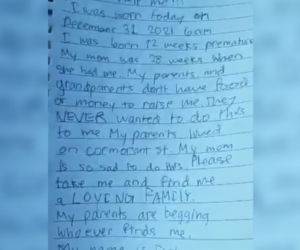 me!!!
I was born today on
December 31 2021 6am
I was born 12 weeks premature
My mom was 28 weeks when
she had me. My parents and
grandparents dont have food
or money to raise me. They
NEVER wanted to do this
to me My parents lived
on cormorant st. My mom
is so sad to do this. Please
take me and find me
a LOVING FAMILY.
My parents are begging
whoever finds me.
My name is